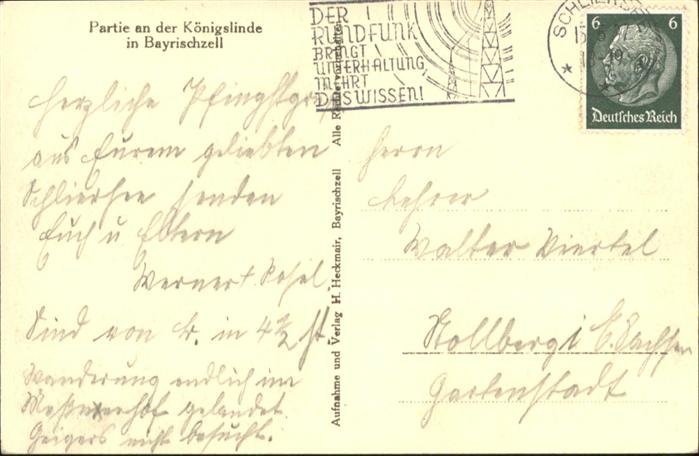 Partie an der Königslinde
in Bayrischzell
DER
RUNDFUNK
BRINGT
UNTERHALTUNG,
MEHRT
DAS WISSEN!
SCHLIERSEE
6 6
Deutsches Reich
Herzliche Pfingstgr
aus Eurem geliebten
Schliersee senden
Euch u Eltern
Werner
Sind von in 4½ St
Wanderung endlich im
gelandet.
Geigers nicht besucht.
Aufnahme und Verlag H. Heckmair, Bayrischzell Alle Rechte vorbehalten
Herrn
Lehrer
Walter Viertel
Stollberg i E. Sachsen
Gartenstadt